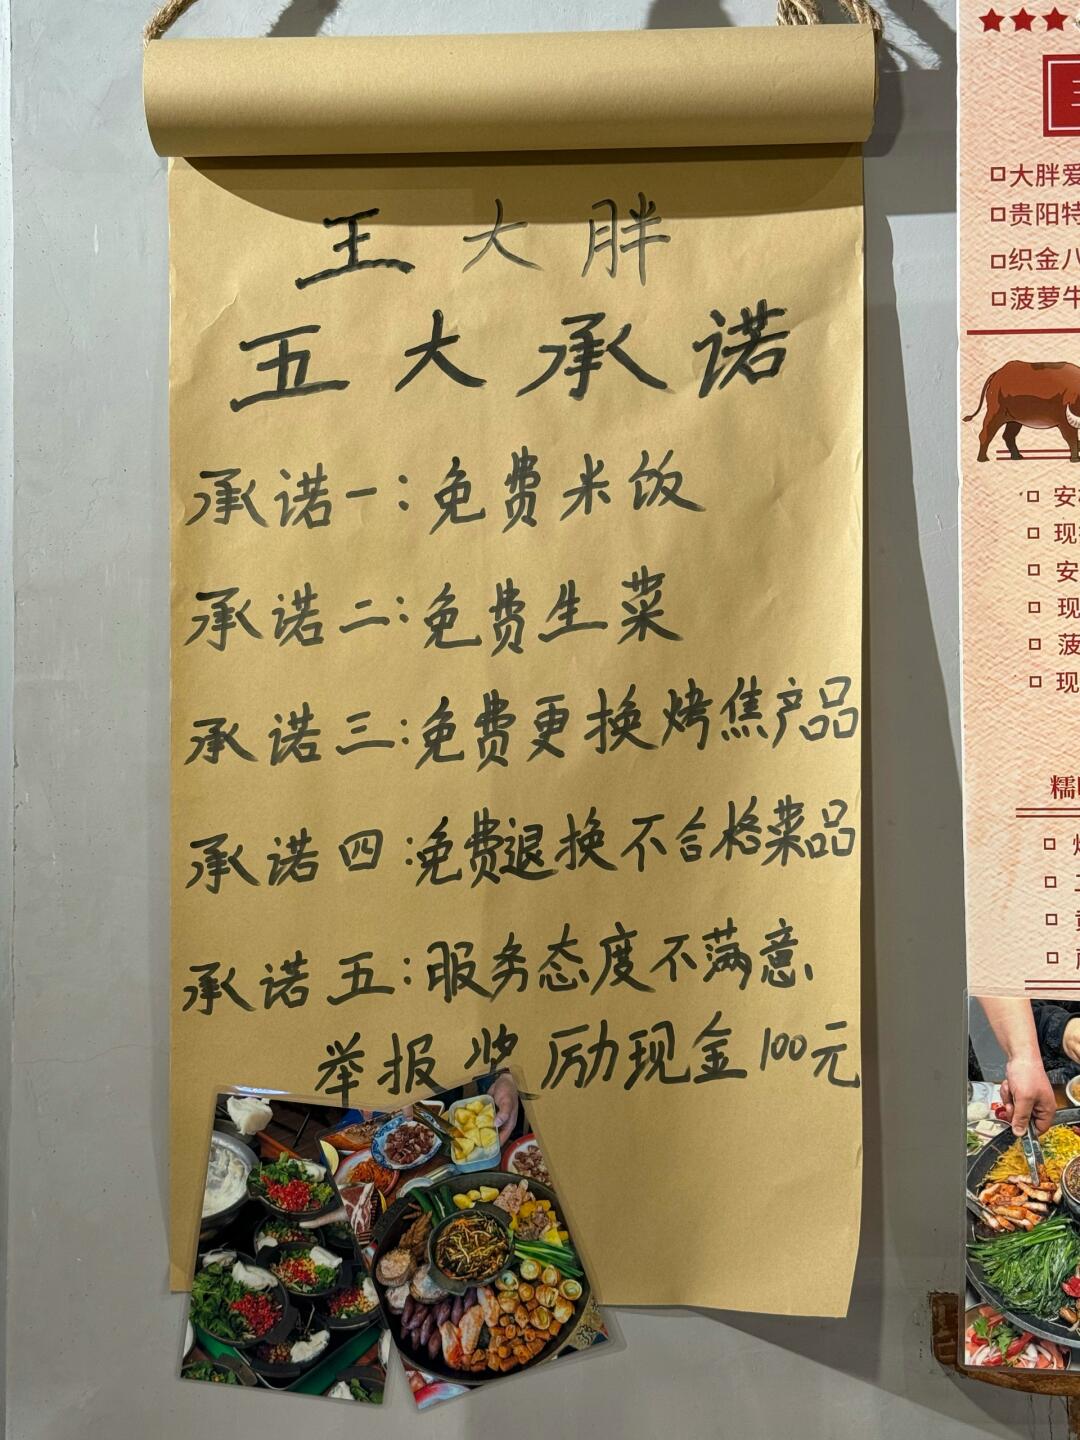 王大胖
五大承诺
承诺一:免费米饭
承诺二:免费生菜
承诺三:免费更换烤焦产品
承诺四:免费退换不合格菜品
承诺五:服务态度不满意、
举报奖励现金100元
大胖爱
贵阳特
织金八
菠萝牛
安
现
安
现
菠
现
糯